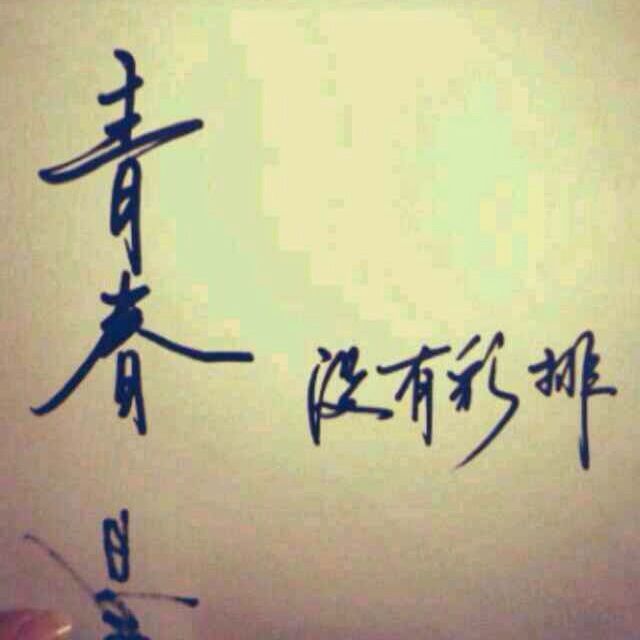 青春
没有彩排